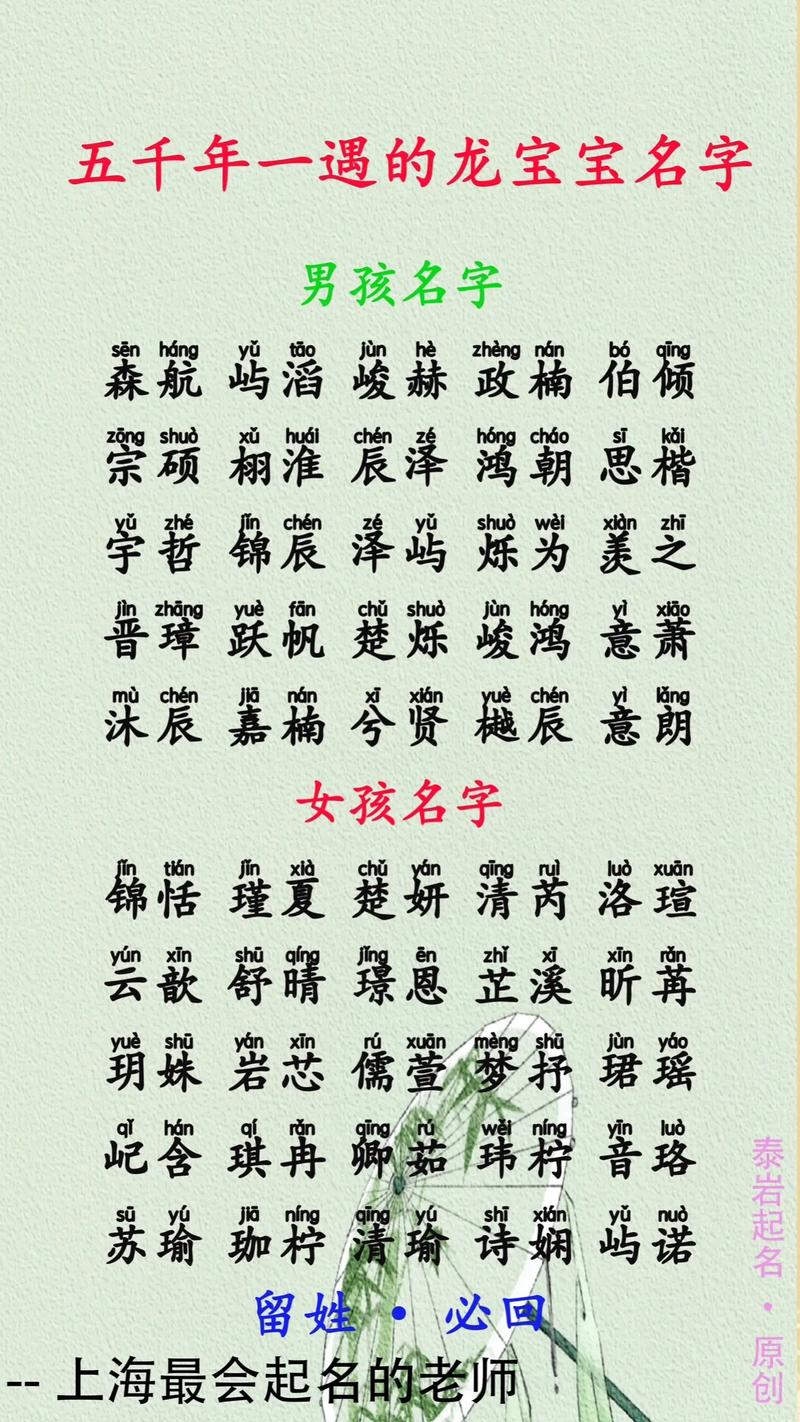 五千年一遇的龙宝宝名字
男孩名字
sēn háng yǔ tāo jùn hè zhèng nán bó qīng
森航 屿滔 峻赫 政楠 伯倾
zōng shuò xǔ huái chén zé hóng cháo sī kǎi
宗硕 栩淮 辰泽 鸿朝 思楷
yǔ zhé jǐn chén zé yǔ shuò wèi xiàn zhī
宇哲 锦辰 泽屿 烁为 羡之
jìn zhāng yuè fān chǔ shuò jùn hóng yì xiāo
晋璋 跃帆 楚烁 峻鸿 意萧
mù chén jiā nán xī xián yuè chén yì lǎng
沐辰 嘉楠 兮贤 樾辰 意朗
女孩名字
jǐn tián jǐn xià chǔ yán qīng ruì luò xuān
锦恬 瑾夏 楚妍 清芮 洛瑄
yún xīn shū qíng jǐng ēn zhǐ xī xīn rǎn
云歆 舒晴 璟恩 芷溪 昕苒
yuè shū yán xīn rú xuān mèng shū jùn yáo
玥姝 岩芯 儒萱 梦抒 珺瑶
qǐ hán qí rǎn qīng rú wèi níng yīn luò
屺含 琪冉 卿茹 玮柠 音珞
sū yú jiā níng qīng yú shī xián yǔ nuò
苏瑜 珈柠 清瑜 诗娴 屿诺
留姓·必回
-- 上海最会起名的老师
泰岩起名·原创